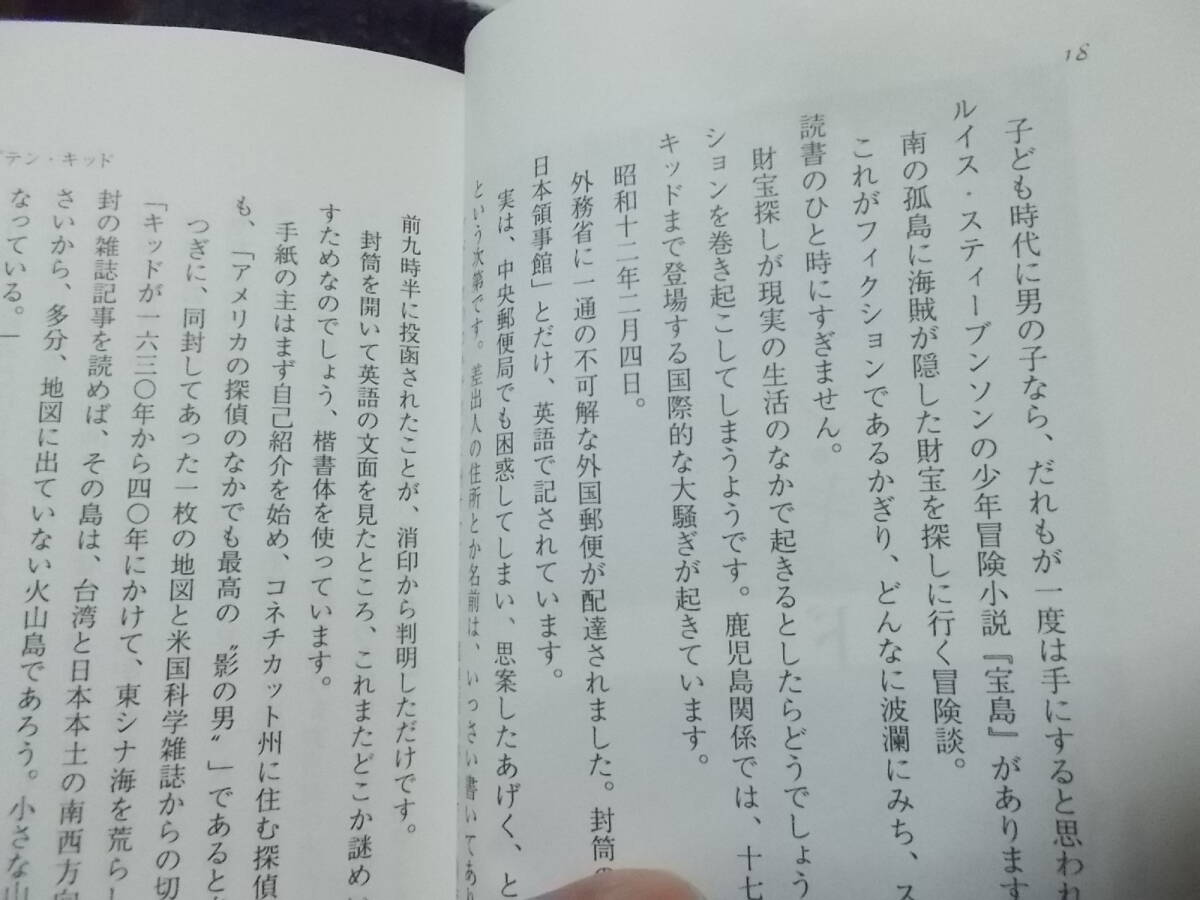 18
子ども時代に男の子なら、だれもが一度は手にすると思われ
ルイス・スティーブンソンの少年冒険小説『宝島』があります
南の孤島に海賊が隠した財宝を探しに行く冒険談。
これがフィクションであるかぎり、どんなに波瀾にみち、ス
読書のひと時にすぎません。
財宝探しが現実の生活のなかで起きるとしたらどうでしょう
ションを巻き起こしてしまうようです。鹿児島関係では、十七
キッドまで登場する国際的な大騒ぎが起きています。
昭和十二年二月四日。
外務省に一通の不可解な外国郵便が配達されました。封筒の
日本領事館」とだけ、英語で記されています。
実は、中央郵便局でも困惑してしまい、思案したあげく、と
という次第です。差出人の住所とか名前は、いっさい書いてあり
テン・キッド
前九時半に投函されたことが、消印から判明しただけです。
封筒を開いて英語の文面を見たところ、これまたどこか謎め
すためなのでしょう、楷書体を使っています。
手紙の主はまず自己紹介を始め、コネチカット州に住む探偵
も、「アメリカの探偵のなかでも最高の〝影の男〟」であると
つぎに、同封してあった一枚の地図と米国科学雑誌からの切
「キッドが一六三〇年から四〇年にかけて、東シナ海を荒らし
封の雑誌記事を読めば、その島は、台湾と日本本土の南西方向
さいから、多分、地図に出ていない火山島であろう。小さな山
なっている。―